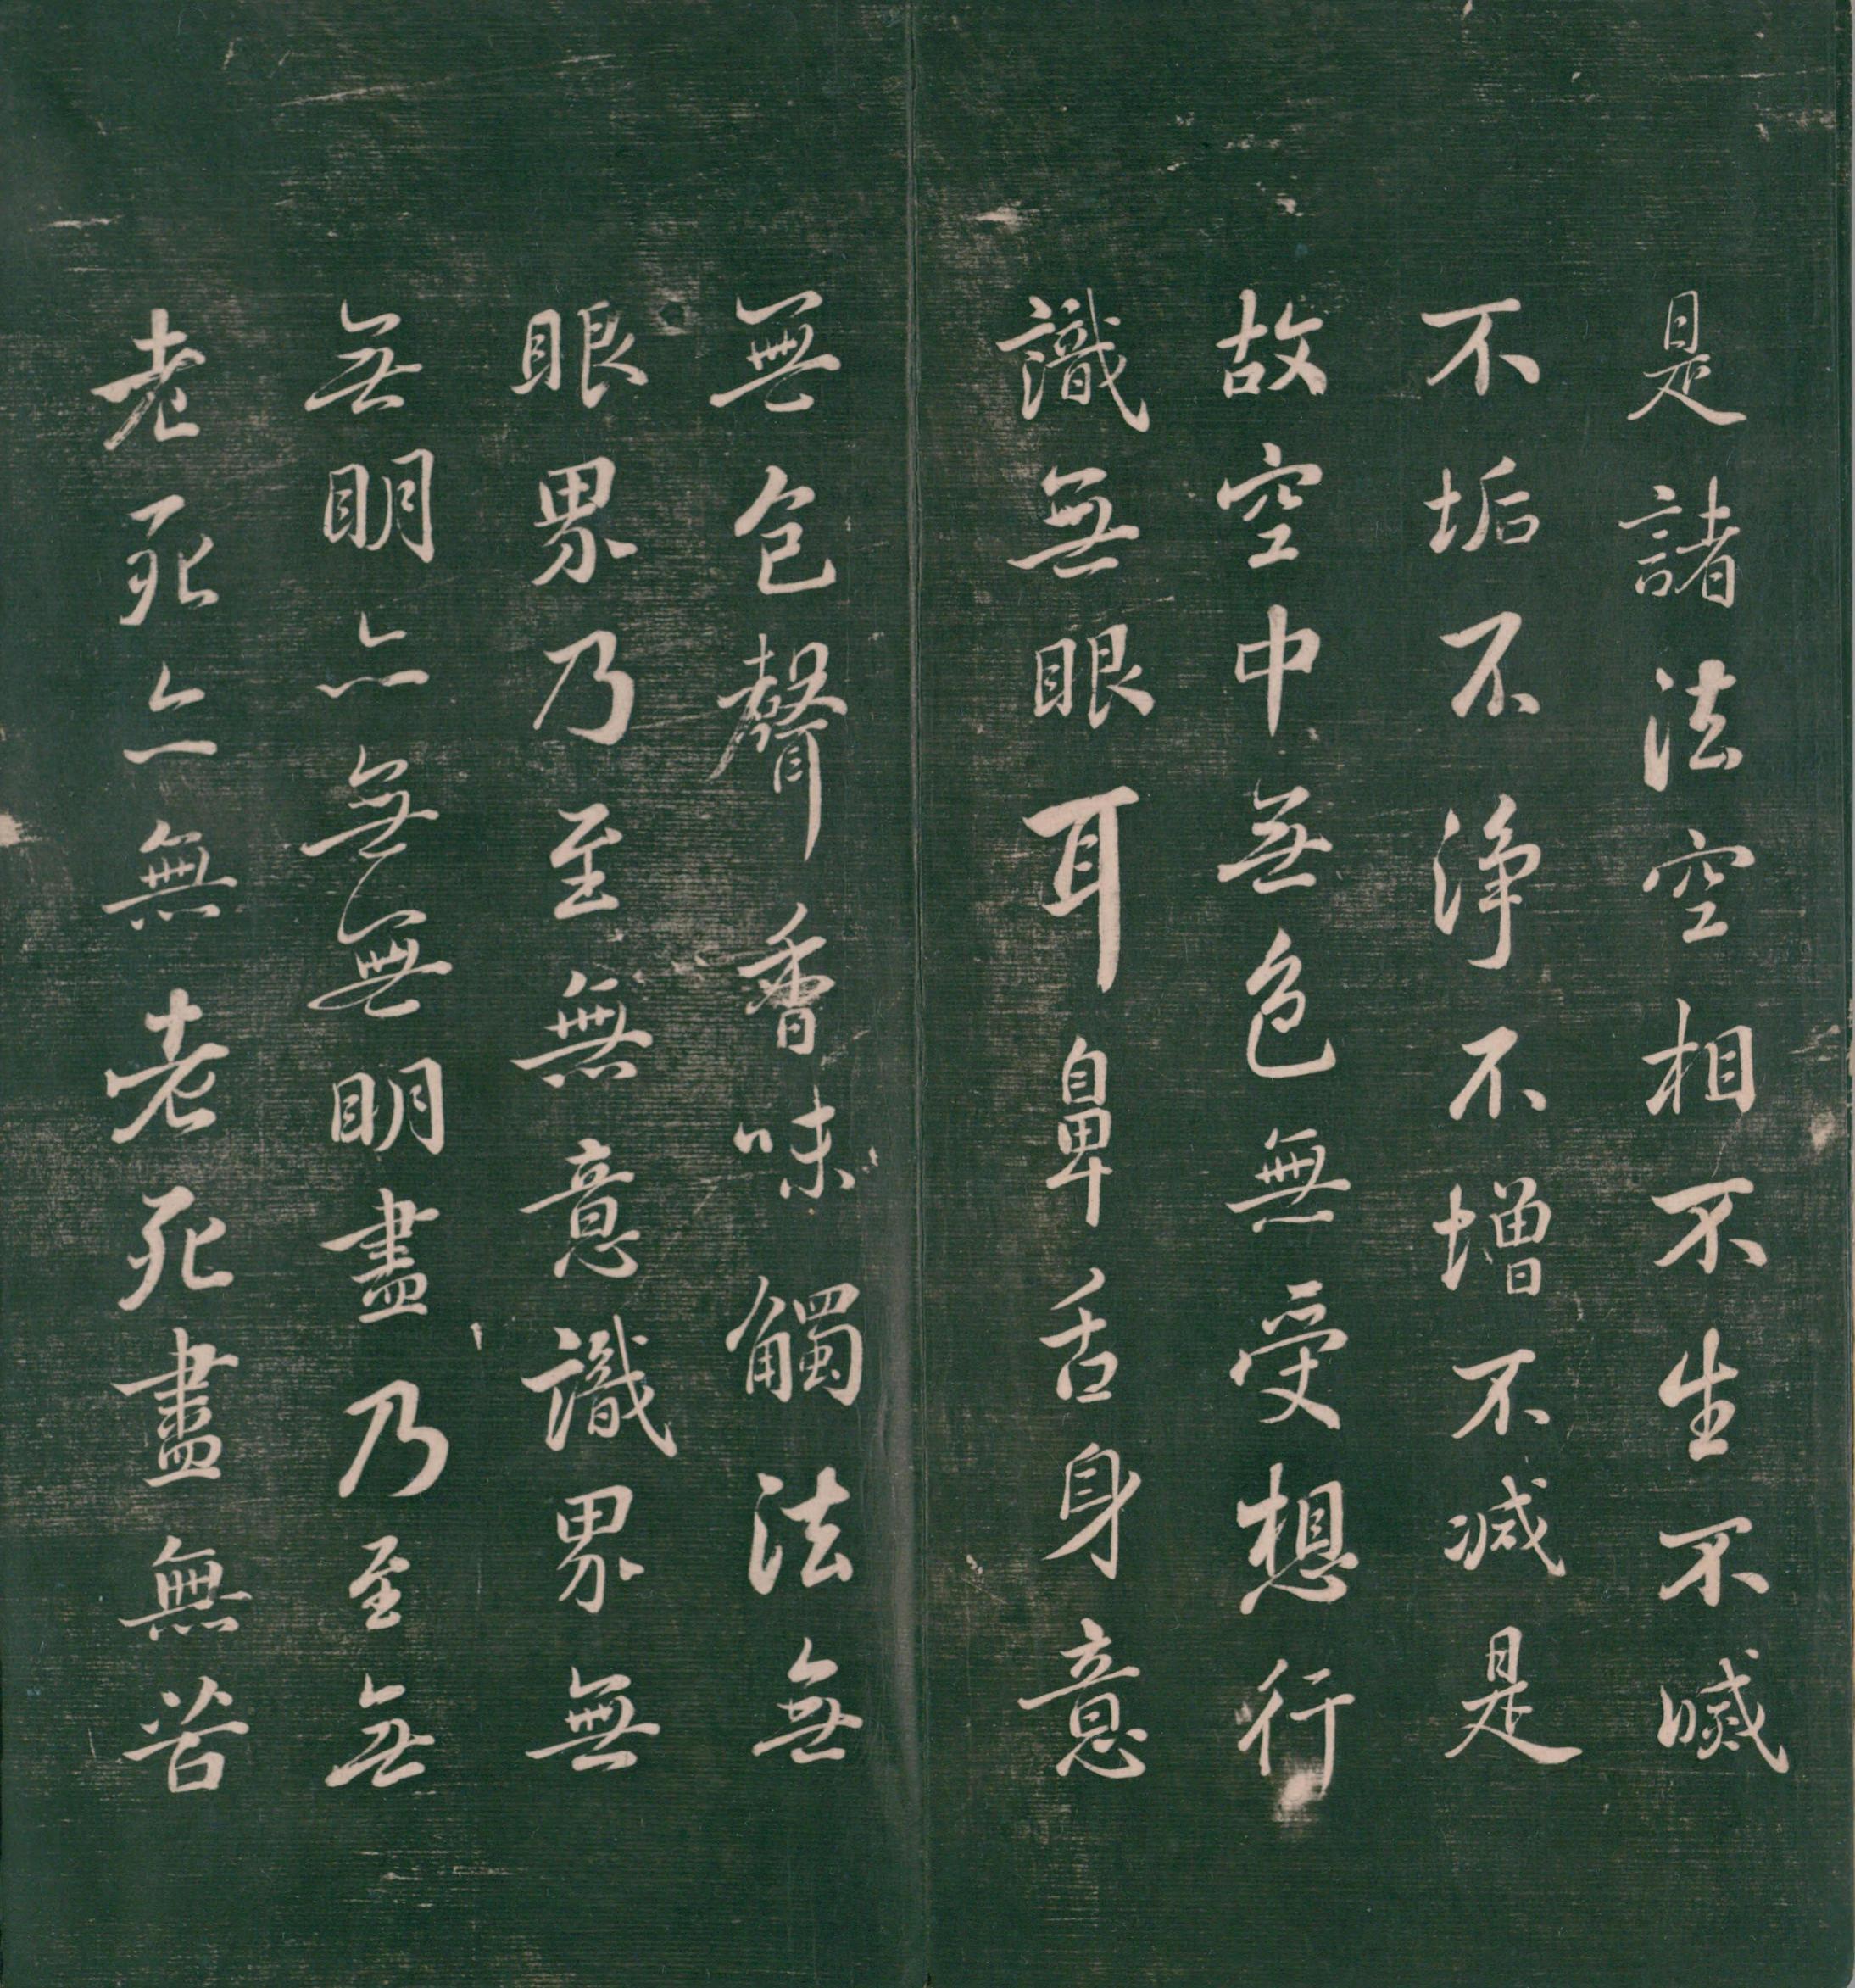 是諸法空相不生不滅
不垢不淨不增不減是
故空中無色無受想行
識無眼耳鼻舌身意
無色聲香味觸法無
眼界乃至無意識界無
無明亦無無明盡乃至無
老死亦無老死盡無苦